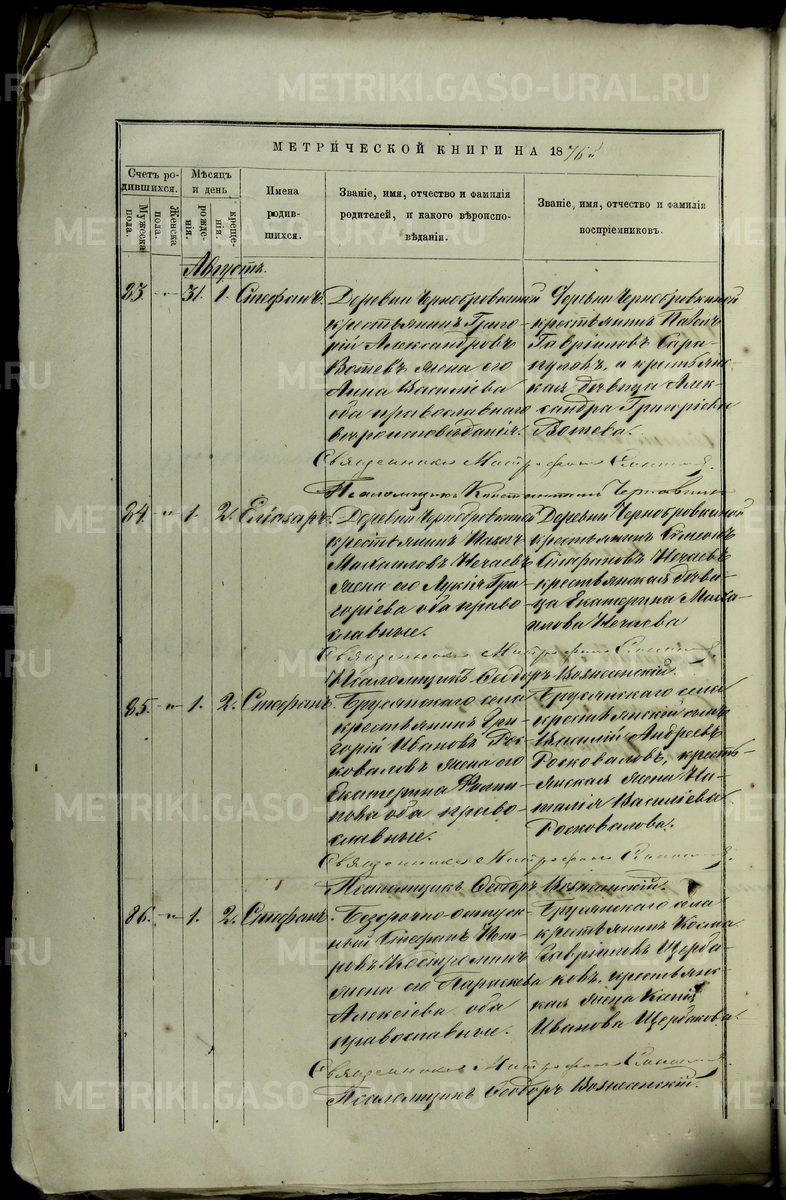 МЕТРИЧЕСКОЙ КНИГИ НА 1876й
Счетъ ро-
дившихся.
Мужеска
пола.
Женска
пола.
Мѣсяцъ
и день
рожде-
нія.
креще-
нія.
Имена
родив-
шихся.
Званіе, имя, отчество и фамилія
родителей, и какого вѣроиспо-
вѣданія.
Званіе, имя, отчество и фамилія
воспріемниковъ.
Августъ.
83 " 31. 1. Стефанъ.
Деревни Чернобровкиной
крестьянинъ Григо-
рій Александровъ
Вотевъ жена его
Анна Василіева
оба православнаго
вѣроисповѣданія.
Деревни Чернобровкиной
крестьянинъ Павелъ
Гавріиловъ Сара-
пуловъ, и крестьянс-
кая дѣвица Алек-
сандра Григоріева
Вотева.
Священникъ Митрофанъ
Псаломщикъ Константинъ
84. " 1. 2. Еліазаръ.
Деревни Чернобровкиной
крестьянинъ
Михаиловъ Нечаевъ
жена его Лукія Гри-
горіева оба право-
славные.
Деревни Чернобровкиной
крестьянинъ Симеонъ
Стефановъ Нечаевъ
крестьянская дѣви-
ца Екатерина Миха-
илова Нечаева
Священникъ Митрофанъ
Псаломщикъ Ѳеодоръ Вознесенскій.
85. " 1. 2. Стефанъ.
Брусянскаго села
крестьянинъ Гри-
горій Ивановъ Рос-
коваловъ жена его
Екатерина Филип-
пова оба право-
славные.
Брусянскаго села
крестьянскій сынъ
Василій Андреевъ
Росковаловъ, кресть-
янская жена На-
талія Василіева
Росковалова.
Священникъ Митрофанъ
Псаломщикъ Ѳеодоръ Вознесенскій.
86. " 1. 2. Стефанъ.
Безсрочно-отпуск-
ный Стефанъ Пет-
ровъ Костроминъ
жена его Параскева
Алексіева оба
православные.
Брусянскаго села
крестьянинъ Косма
Гавріиловъ Щерба-
ковъ. крестьянс-
кая жена Ксенія
Иванова Щербакова.
Священникъ Митрофанъ
Псаломщикъ Ѳеодоръ Вознесенскій.
METRIKI.GASO-URAL.RU